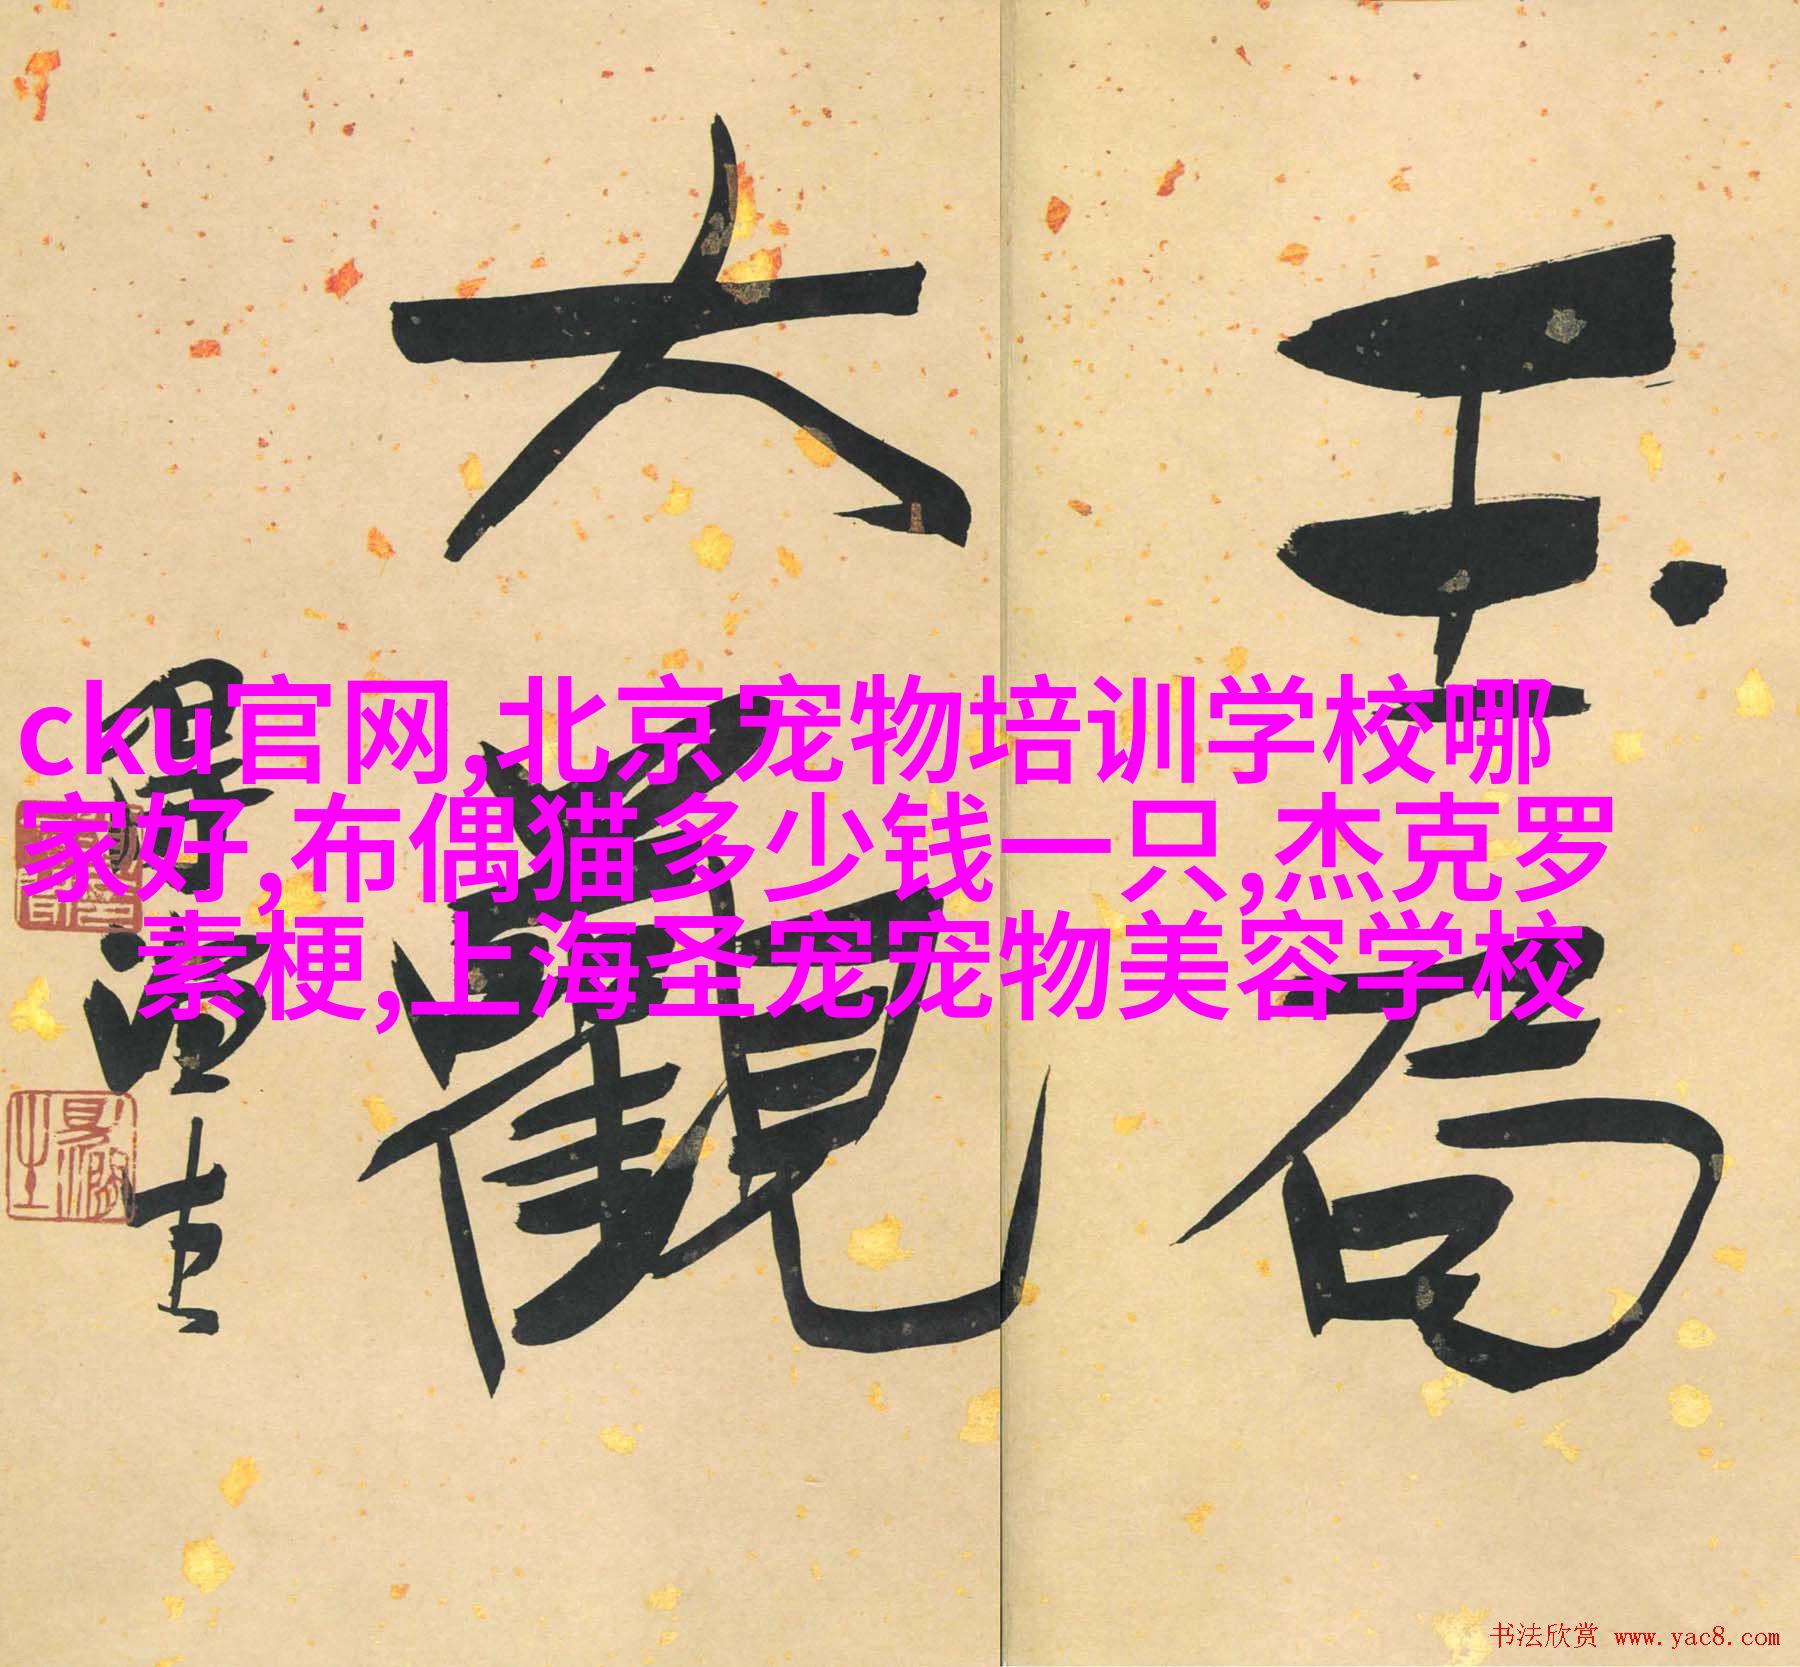 玉局
大觀
cku官网,北京宠物培训学校哪
家好,布偶猫多少钱一只,杰克罗
素梗,上海圣宠宠物美容学校
书法欣赏 www.yac8.com